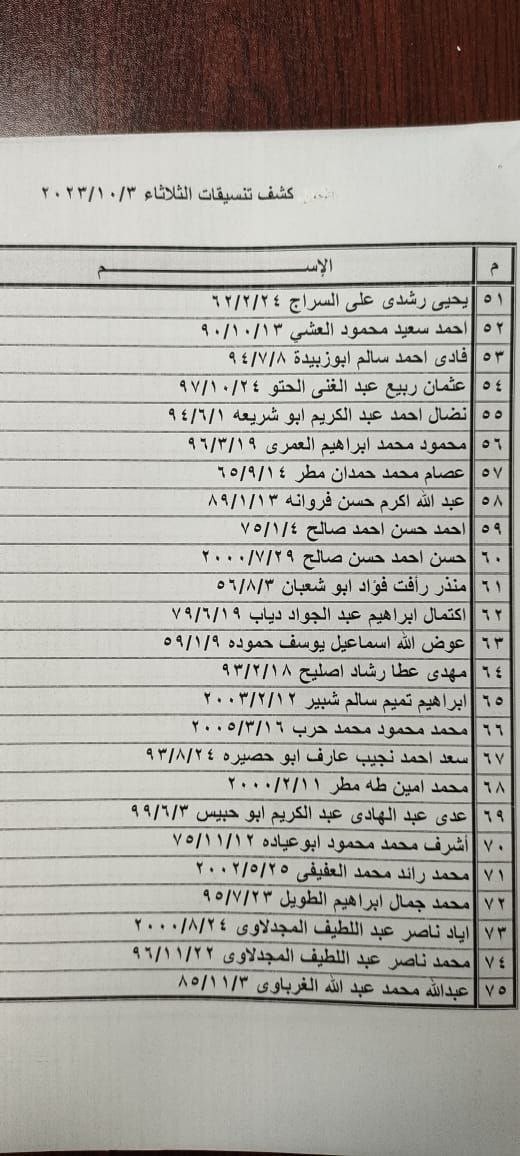 كشف تنسيقات الثلاثاء ٢٠٢٣/١٠/٣
م الإســـــــم
٥١ يحيى رشدى على السراج ٦٢/٢/٢٤
٥٢ احمد سعيد محمود العشي ٩٠/١٠/١٣
٥٣ فادى احمد سالم ابوزبيدة ٩٤/٧/٨
٥٤ عثمان ربيع عبد الغنى الحتو ٩٧/١٠/٢٤
٥٥ نضال احمد عبد الكريم ابو شريعه ٩٤/٦/١
٥٦ محمود محمد ابراهيم العمرى ٩٦/٣/١٩
٥٧ عصام محمد حمدان مطر ٦٥/٩/١٤
٥٨ عبد الله اكرم حسن فروانه ٨٩/١/١٣
٥٩ احمد حسن احمد صالح ٧٥/١/٤
٦٠ حسن احمد حسن صالح ٢٠٠٠/٧/٢٩
٦١ منذر رأفت فؤاد ابو شعبان ٥٦/٨/٣
٦٢ اكتمال ابراهيم عبد الجواد دياب ٧٩/٦/١٩
٦٣ عوض الله اسماعيل يوسف حموده ٥٩/١/٩
٦٤ مهدى عطا رشاد اصليح ٩٣/٢/١٨
٦٥ ابراهيم تميم سالم شبير ٢٠٠٣/٢/١٢
٦٦ محمد محمود محمد حرب ٢٠٠٥/٣/١٦
٦٧ سعد احمد نجيب عارف ابو حصيره ٩٣/٨/٢٤
٦٨ محمد امين طه مطر ٢٠٠٠/٢/١١
٦٩ عدى عبد الهادى عبد الكريم ابو حبيس ٩٩/٦/٣
٧٠ أشرف محمد محمود ابوعياده ٧٥/١١/١٢
٧١ محمد رائد محمد العفيفى ٢٠٠٢/٥/٢٥
٧٢ محمد جمال ابراهيم الطويل ٩٥/٧/٢٣
٧٣ اياد ناصر عبد اللطيف المجدلاوى ٢٠٠٠/٨/٢٤
٧٤ محمد ناصر عبد اللطيف المجدلاوى ٩٦/١١/٢٢
٧٥ عبدالله محمد عبد الله الغرباوى ٨٥/١١/٣